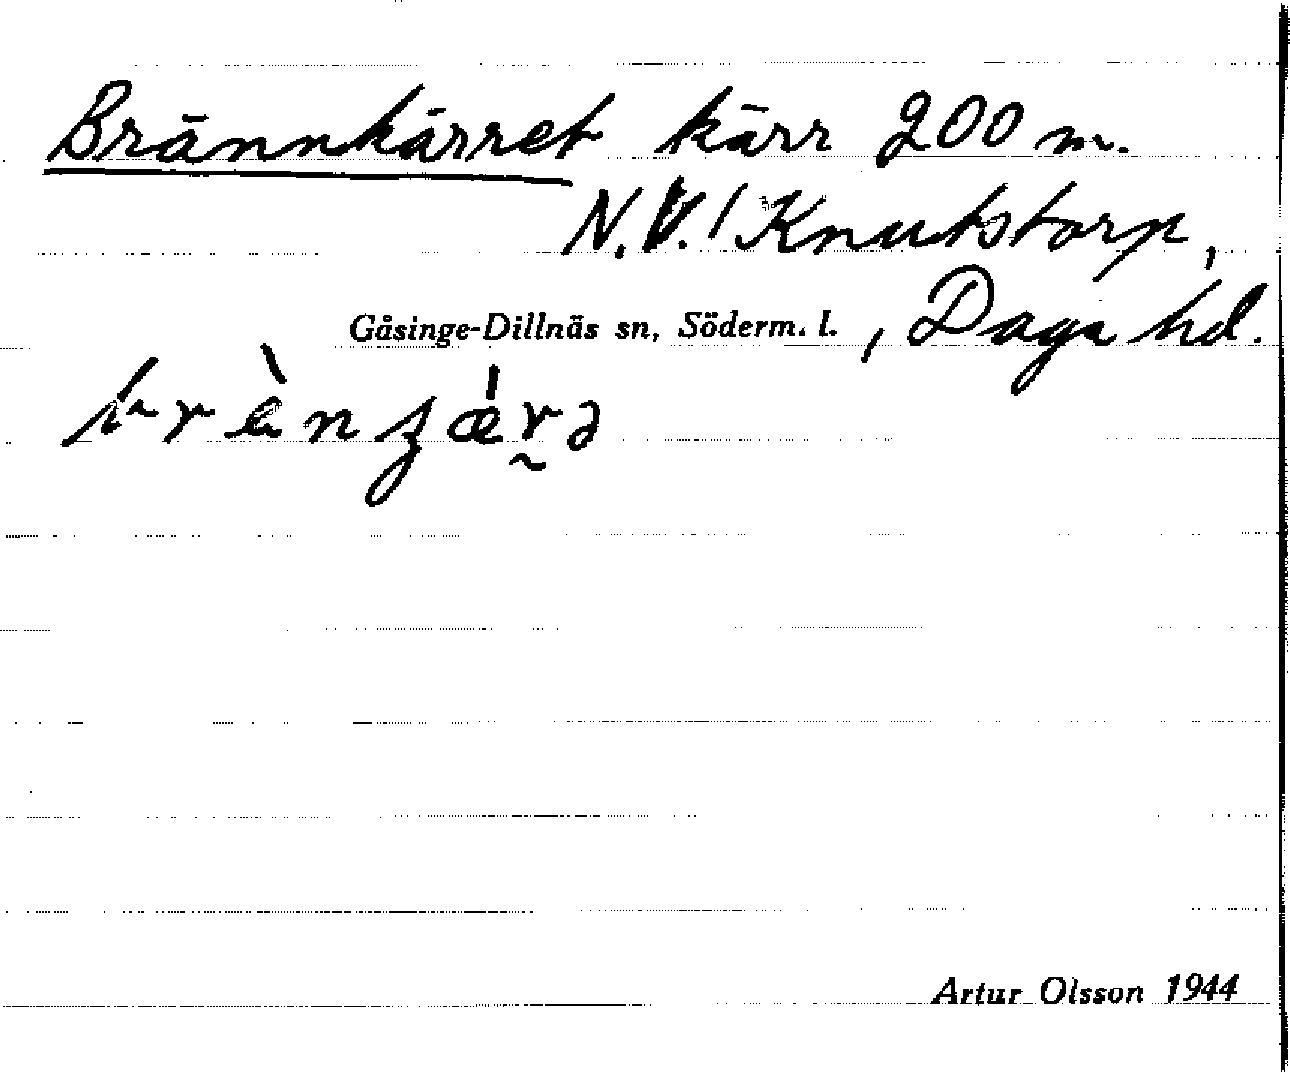 Brännkärret kärr 200 m.
N.V./Knutstorp,
Gåsinge-Dillnäs sn, Söderm. l. , Daga hd.
Artur Olsson 1944